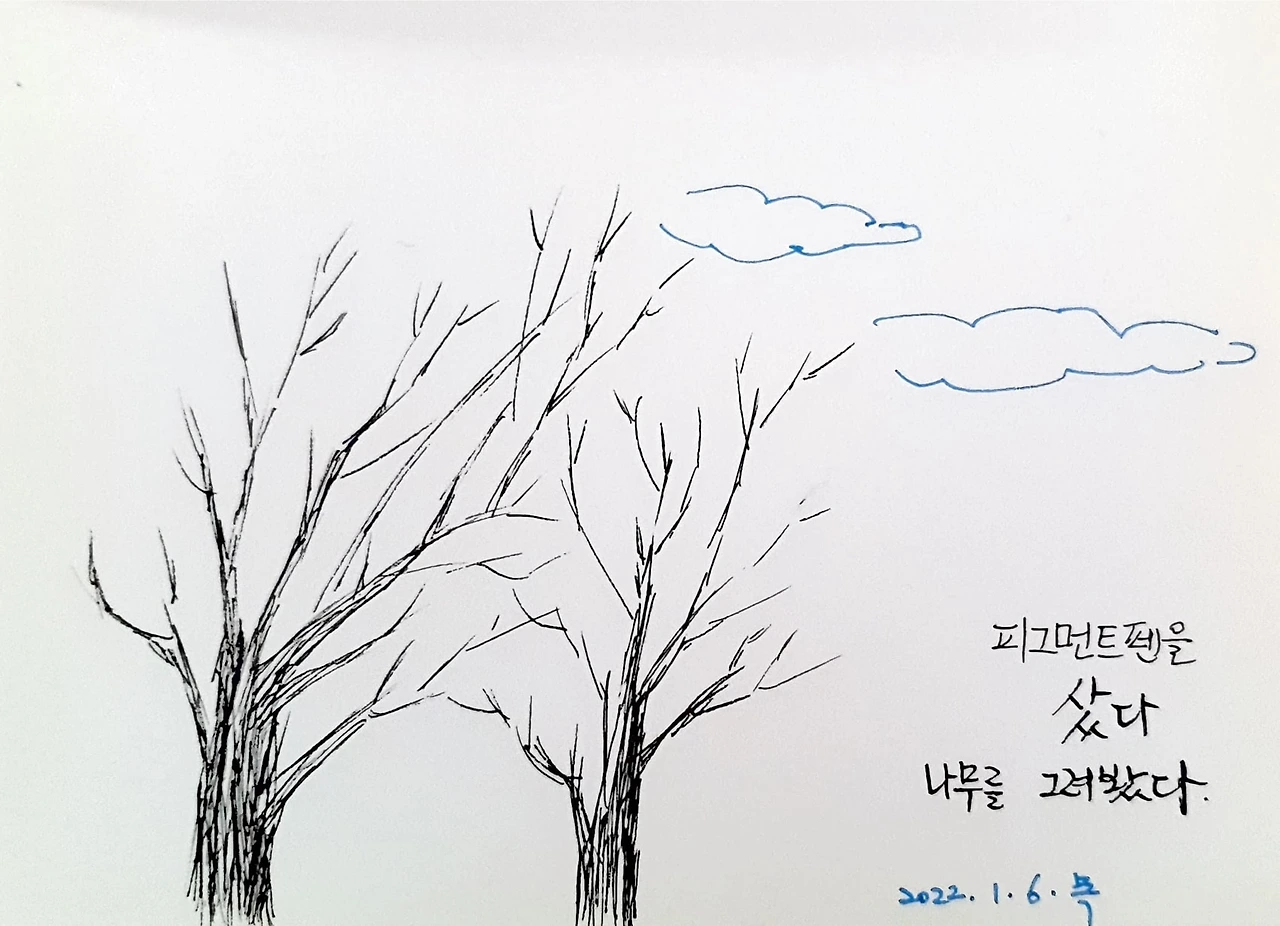 피그먼트펜을
샀다
나무를 그려봤다.
2022. 1. 6. 목